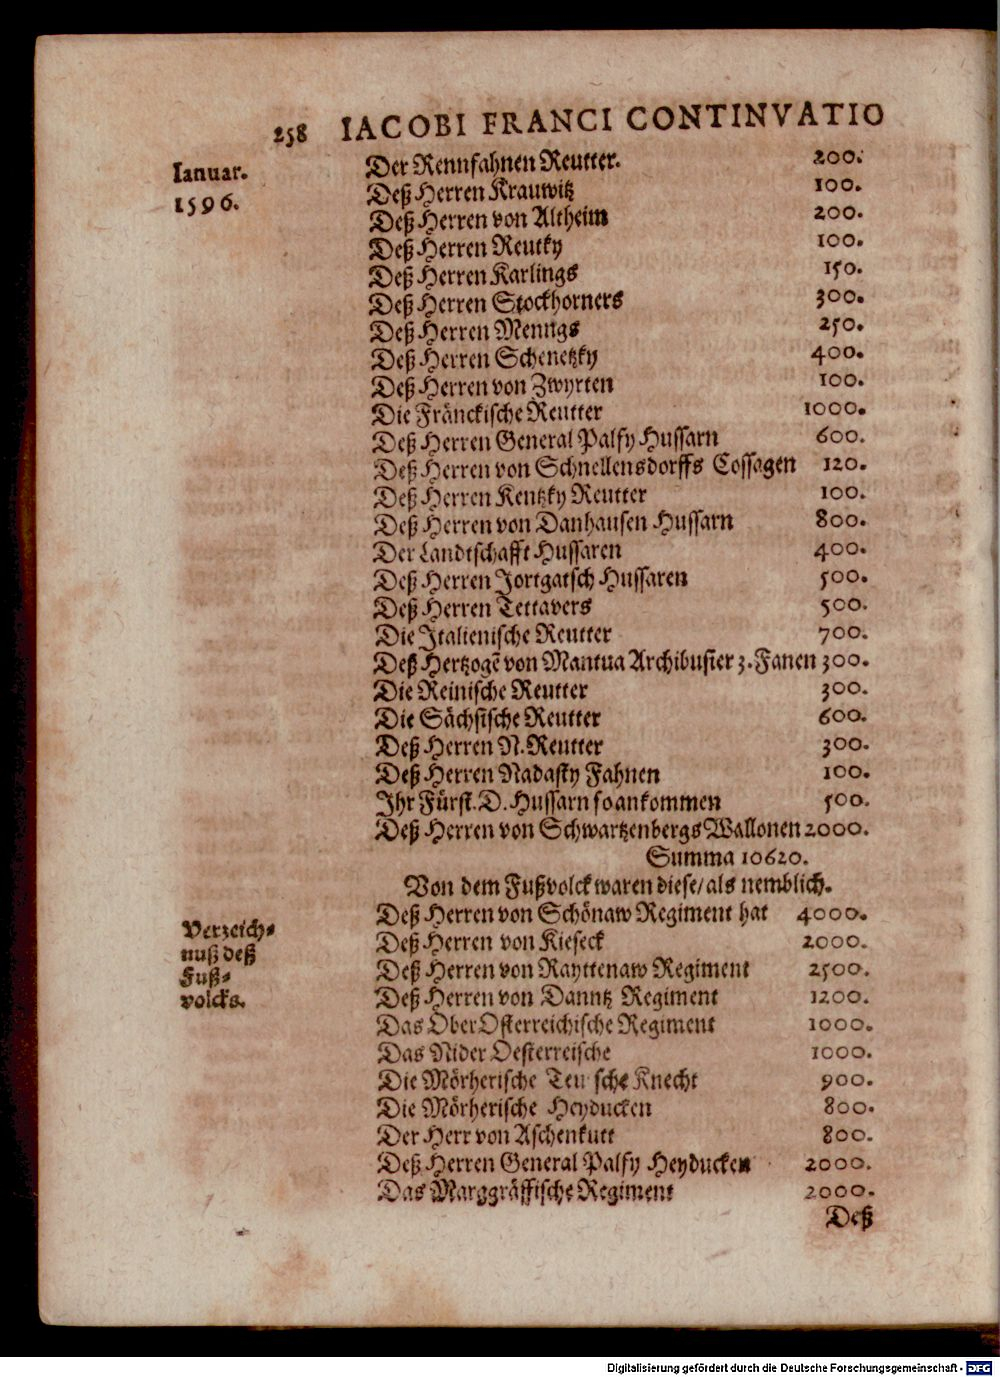 258 IACOBI FRANCI CONTINVATIO
Ianuar.
1596.
Der Rennfahnen Reutter. 200.
Deß Herren Krauwitz 100.
Deß Herren von Altheim 200.
Deß Herren Reutky 100.
Deß Herren Karlings 150.
Deß Herren Stockhorners 300.
Deß Herren Menngs 250.
Deß Herren Schenetzky 400.
Deß Herren von Zwyrten 100.
Die Fränckische Reutter 1000.
Deß Herren General Palfy Hussarn 600.
Deß Herren von Schnellensdorffs Cossagen 120.
Deß Herren Kentzky Reutter 100.
Deß Herren von Danhausen Hussarn 800.
Der Landtschafft Hussaren 400.
Deß Herren Jortgatsch Hussaren 500.
Deß Herren Tettavers 500.
Die Italienische Reutter 700.
Deß Hertzogē von Mantua Archibusier 3. Fanen 300.
Die Reinische Reutter 300.
Die Sächsische Reutter 600.
Deß Herren N. Reutter 300.
Deß Herren Nadasty Fahnen 100.
Ihr Fürst. D. Hussarn so ankommen 500.
Deß Herren von Schwartzenbergs Wallonen 2000.
Summa 10620.
Von dem Fußvolck waren diese/als nemblich.
Verzeich-
nuß deß
Fuß-
volcks.
Deß Herren von Schönaw Regiment hat 4000.
Deß Herren von Kieseck 2000.
Deß Herren von Rayttenaw Regiment 2500.
Deß Herren von Danntz Regiment 1200.
Das Ober Osterreichische Regiment 1000.
Das Nider Oesterreische 1000.
Die Mörherische Teu sche Knecht 900.
Die Mörherische Heyducken 800.
Der Herr von Aschenkutt 800.
Deß Herren General Palfy Heyducken 2000.
Das Marggräffische Regiment 2000.
Deß
Digitalisierung gefördert durch die Deutsche Forschungsgemeinschaft - DFG